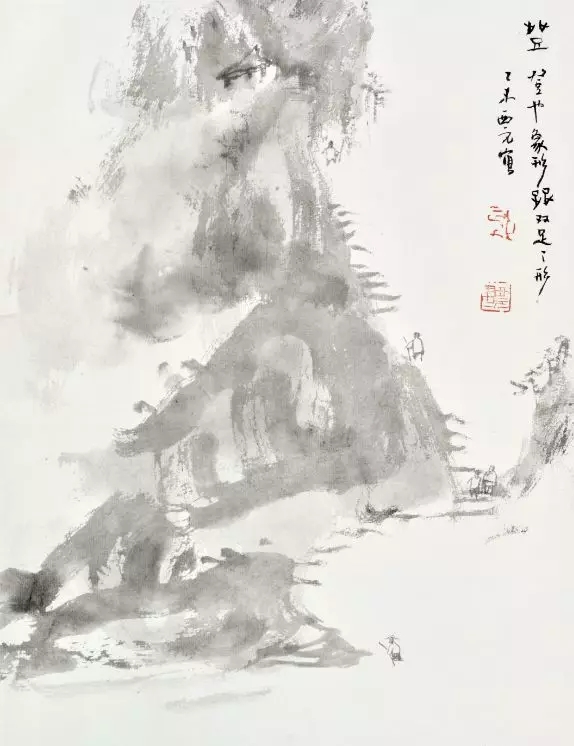 登也象形跟双足之形
乙未西元寫